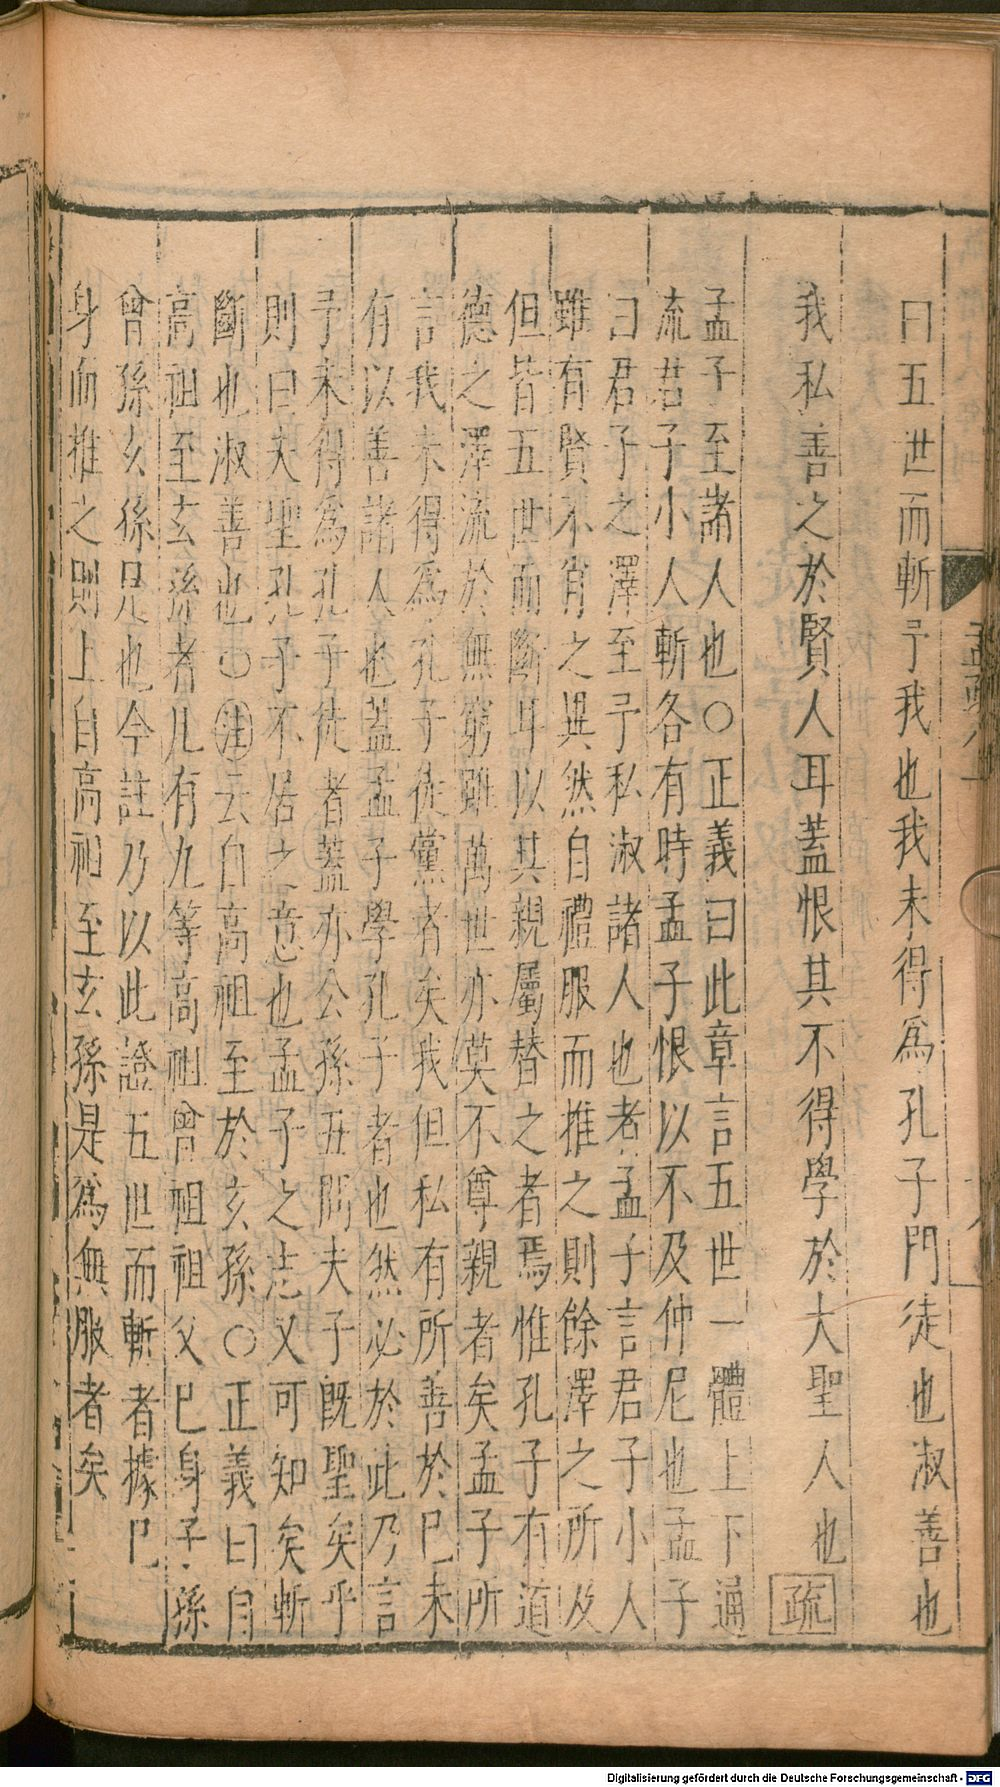 曰五世而斬予我也我未得爲孔子門徒也淑善也
我私善之於賢人耳蓋恨其不得學於大聖人也疏
孟子至諸人也○正義曰此章言五世一體上下通
流君子小人斬各有時孟子恨以不及仲尼也孟子
曰君子之澤至予私淑諸人也者孟子言君子小人
雖有賢不肖之異然自禮服而推之則餘澤之所及
但皆五世而斷耳以其親屬替之者焉惟孔子有道
德之澤流於無窮雖萬世亦莫不尊親者矣孟子所
言我未得爲孔子徒黨者矣我但私有所善於已未
有以善諸人也蓋孟子學孔子者也然必於此乃言
予未得爲孔子徒者蓋亦公孫丑問夫子既聖矣乎
則曰夫聖孔子不居之意也孟子之志又可知矣斬
斷也淑善也○注云自高祖至於玄孫○正義曰自
高祖至玄孫者凡有九等高祖曾祖祖父已身子孫
曾孫玄孫是也今註乃以此證五世而斬者據已
身而推之則上自高祖至玄孫是爲無服者矣
Digitalisierung gefördert durch die Deutsche Forschungsgemeinschaft - DFG